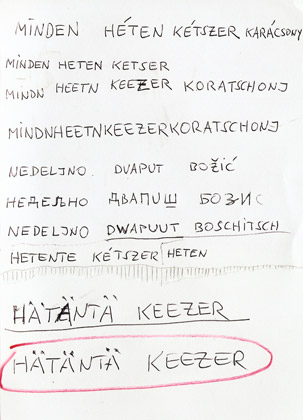 MINDEN HÉTEN KÉTSZER KARÁCSONY
MINDEN HETEN KETSER
MINDN HEETN KEEZER KORATSCHONJ
MINDNHEETNKEEZERKORATSCHONJ
NEDELJNO. DVAPUT BOŽIĆ
НЕДЕЉНО ДВАПУШ БОЗИС
NEDELJNO DWAPUUT BOSCHITSCH
HETENTE KÉTSZER HETEN
HÄTÄNTÄ KEEZER
HÄTÄNTÄ KEEZER